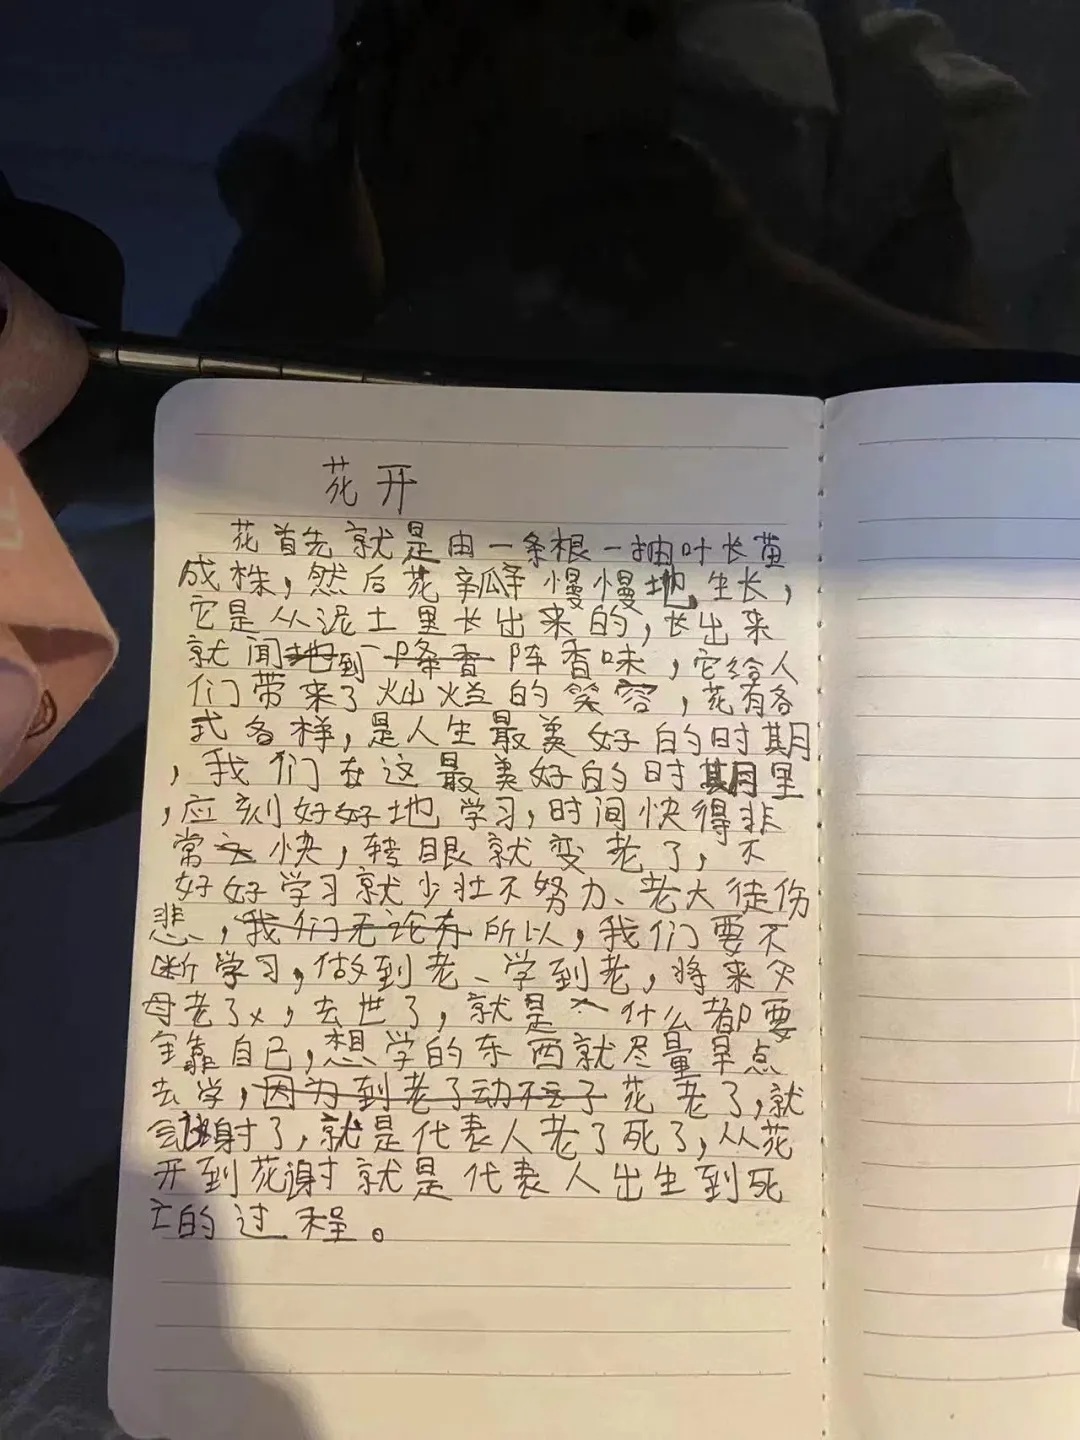 花开
花首先就是由一条根一抽叶长茧
成株，然后花瓣慢慢地生长，
它是从泥土里长出来的，长出来
就闻到一阵香味，它给人
们带来了灿烂的笑容，花有各
式各样，是人生最美好的时期
，我们在这最美好的时期里
，应刻好好地学习，时间快得非
常快，转眼就变老了，不
好好学习就少壮不努力、老大徒伤
悲，所以，我们要不
断学习，做到老、学到老，将来父
母老了，去世了，就是什么都要
全靠自己，想学的东西就尽量早点
去学，花老了，就
会谢了，就是代表人老了死了，从花
开到花谢就是代表人出生到死
亡的过程。